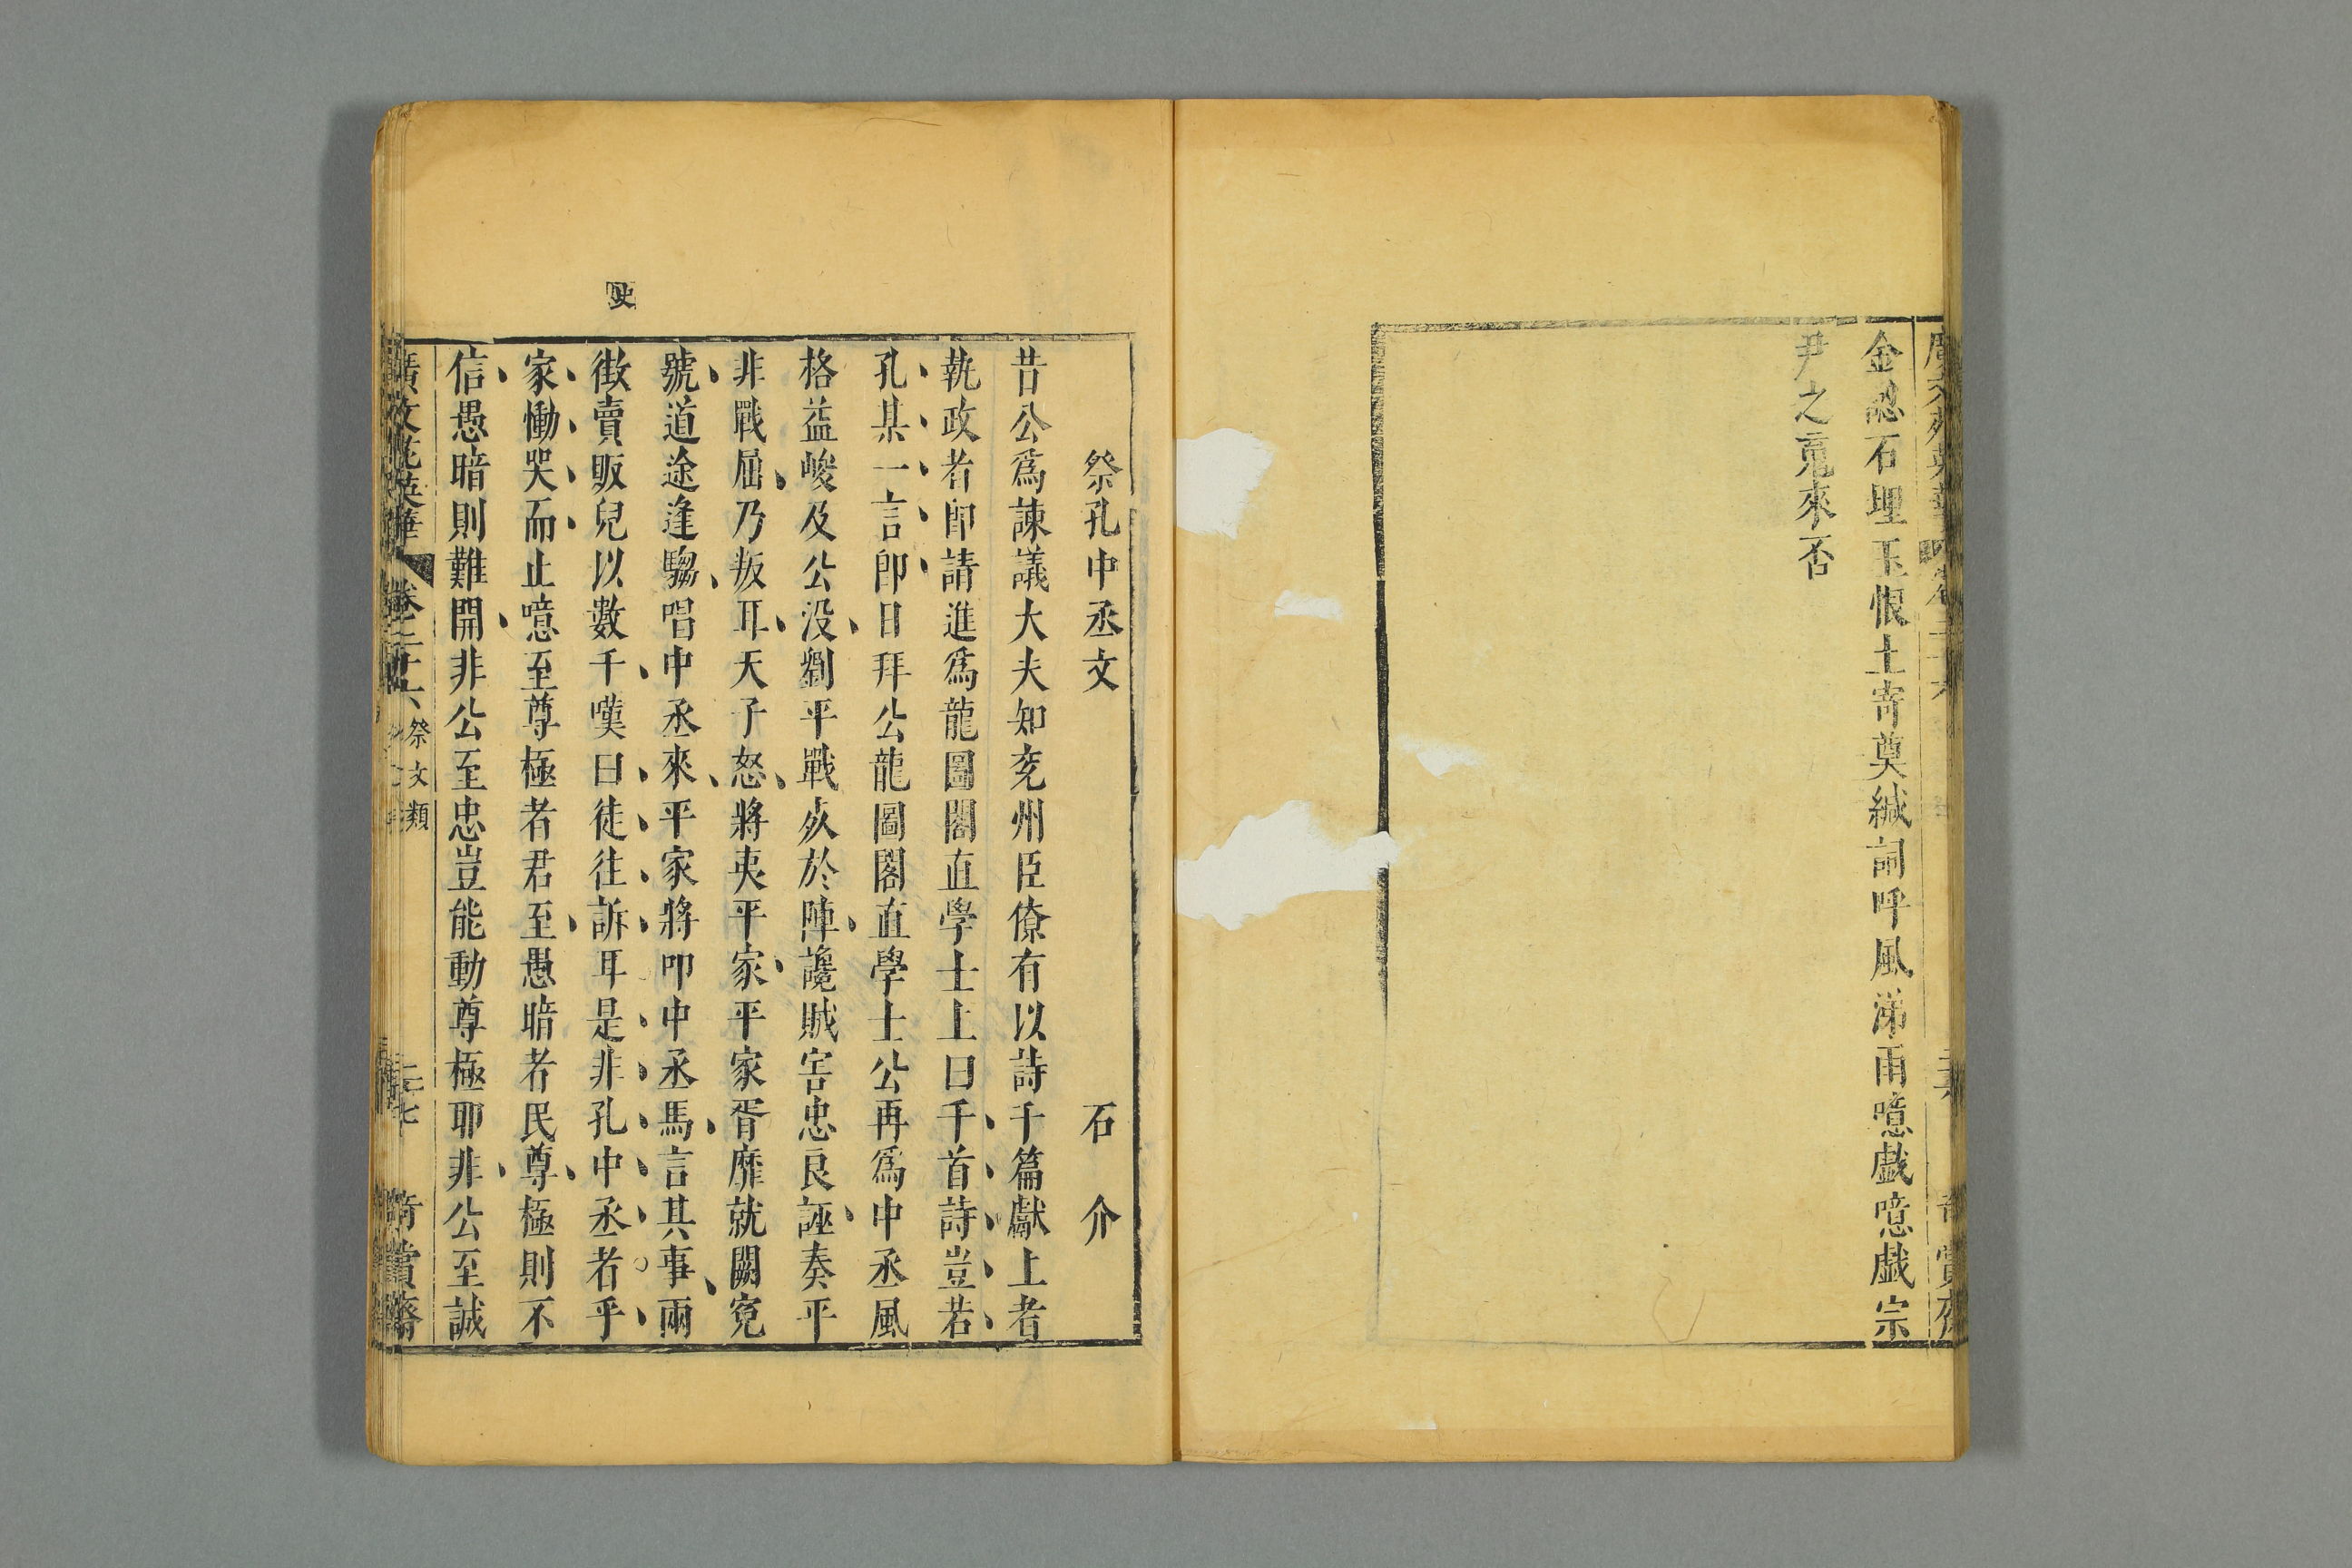 金認石埋玉恨土寄奠緘詞呼風涕雨噫戲噫戲宗
尹之䰟來否
祭孔中丞文 石介
昔公爲諫議大夫知兖州臣僚有以詩千篇獻上者
執政者卽請進爲龍圖閣直學士上曰千首詩豈若
孔某一言卽日拜公龍圖閣直學士公再爲中丞風
格益峻及公没劉平戰歿於陣讒賊害忠良誣奏平
非戰屈乃叛耳天子怒將夷平家平家胥靡就闕寃
號道途逢騶唱中丞來平家將叩中丞馬言其事兩
徴賣販兒以數千嘆曰徒往訴耳是非孔中丞者乎
家慟哭而止噫至尊極者君至愚暗者民尊極則不
信愚暗則難開非公至忠豈能動尊極耶非公至誠
廣文苑英華 卷二十六 祭文類 二十七 奇賞齋